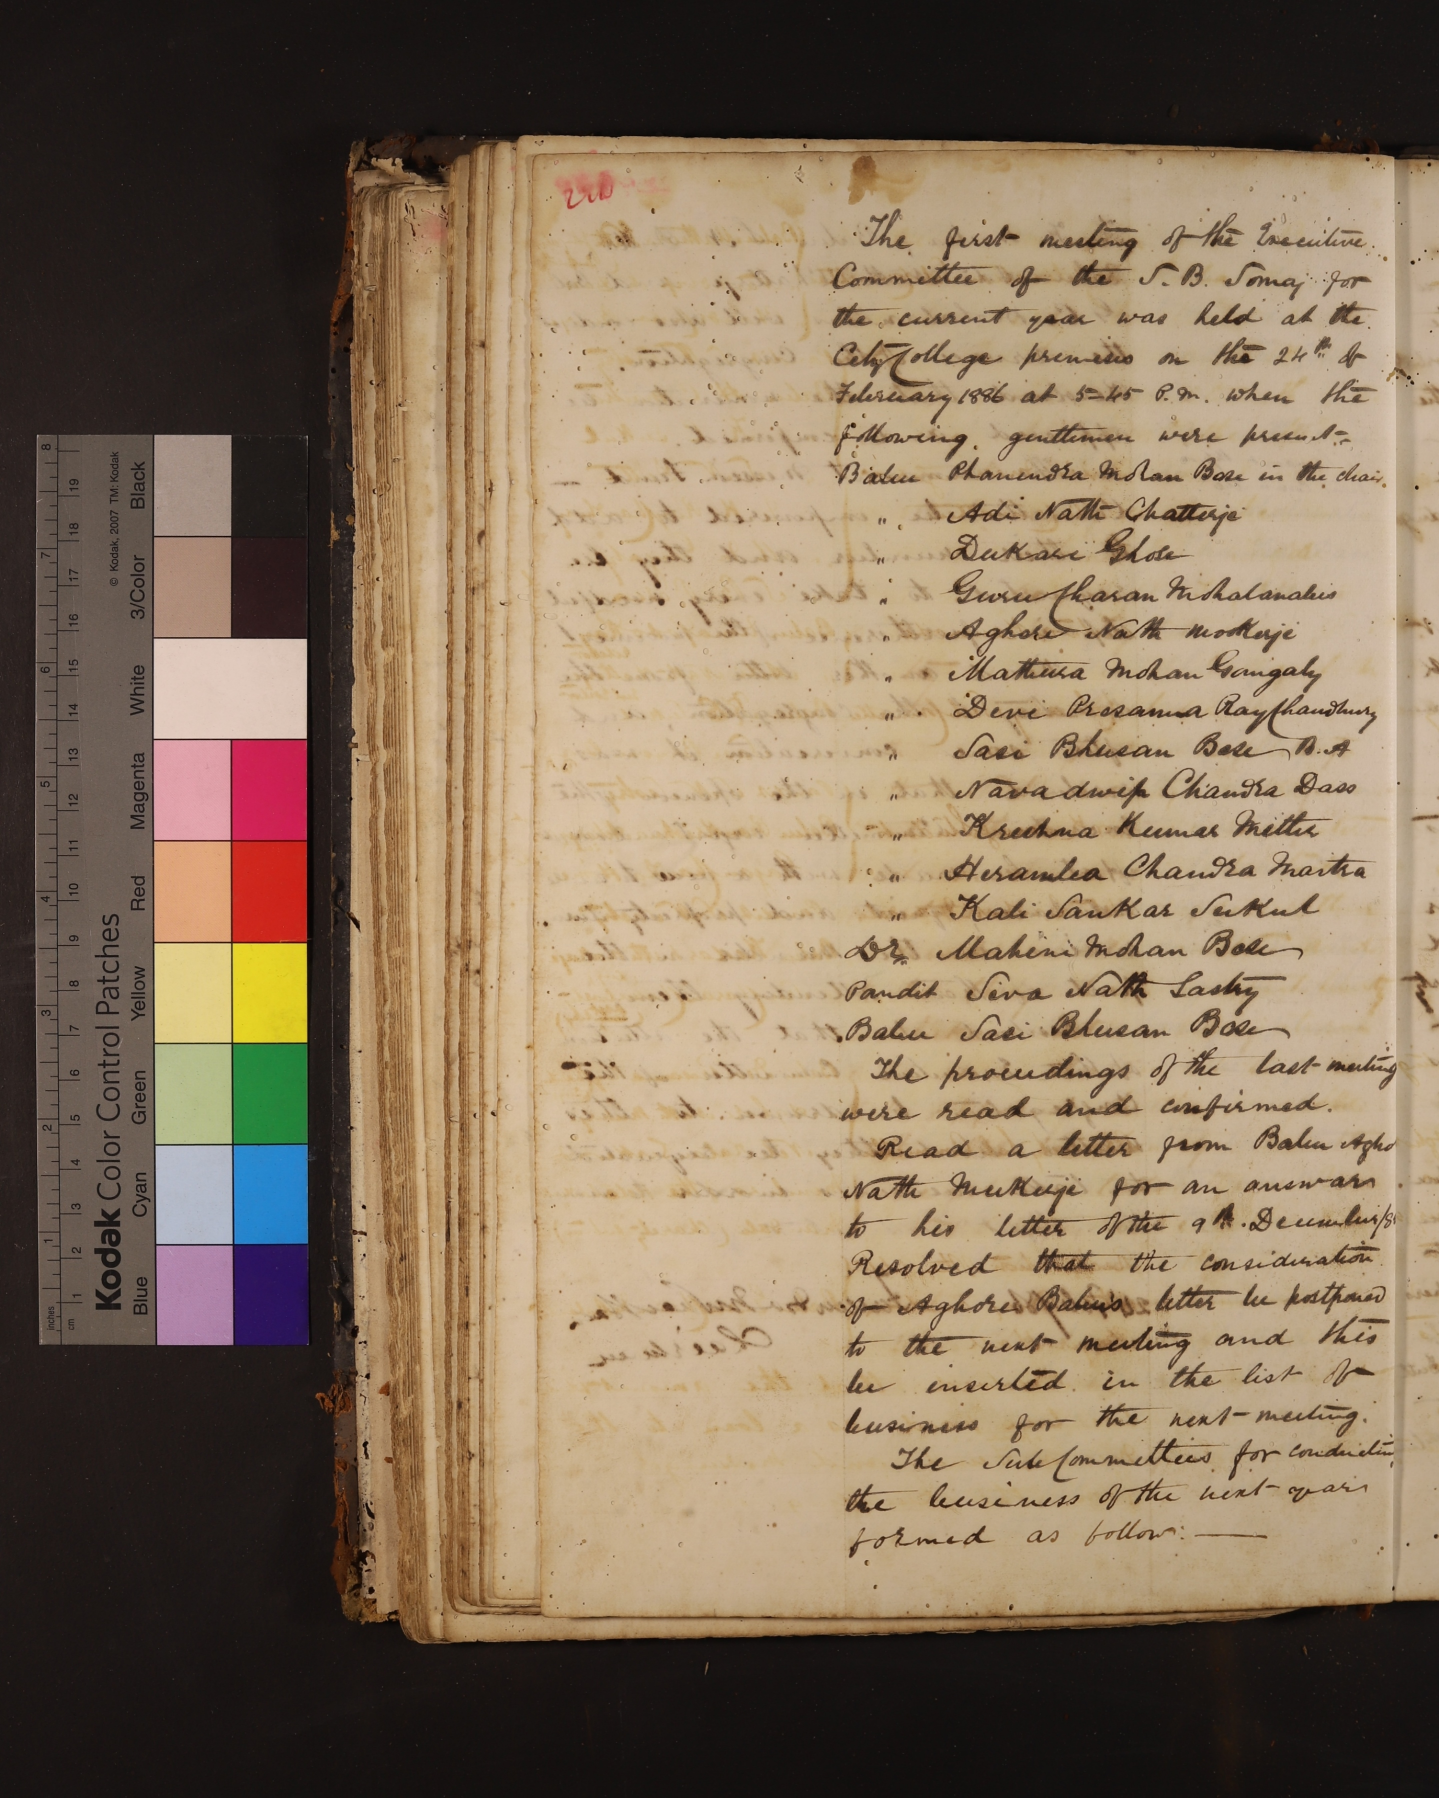 220
The first meeting of the Executive
Committee of the S. B. Somaj for
the current year was held at the
City College premises on the 24th of
February 1886 at 5-45 P.M. when the
following gentlemen were present:-
Babu Phanendra Mohan Bose in the chair.
" Adi Nath Chatterje
" Dukari Ghose
" Guru Charan Mohalanabis
" Aghore Nath Mookerje
" Mathura Mohan Gangaly
" Devi Prosanna Ray Chaudhury
" Sasi Bhusan Bose B.A
" Navadwip Chandra Dass
" Krishna Kumar Mitter
" Heramba Chandra Maitra
" Kali Sankar Sukul
Dr. Mohini Mohan Bose
Pandit Siva Nath Sastry
Babu Sasi Bhusan Bose
The proceedings of the last meeting
were read and confirmed.
Read a letter from Babu Agho
Nath Mukerje for an answar
to his letter of the 9th December/8
Resolved that the consideration
of Aghore Babu's letter be postponed
to the next meeting and this
be inserted in the list of
business for the next meeting.
The Sub Committees for conductin
the business of the next year
formed as follow: —
Kodak Color Control Patches
© Kodak, 2007 TM: Kodak
Blue Cyan Green Yellow Red Magenta White 3/Color Black
inches 1 2 3 4 5 6 7 8
cm 1 2 3 4 5 6 7 8 9 10 11 12 13 14 15 16 17 18 19